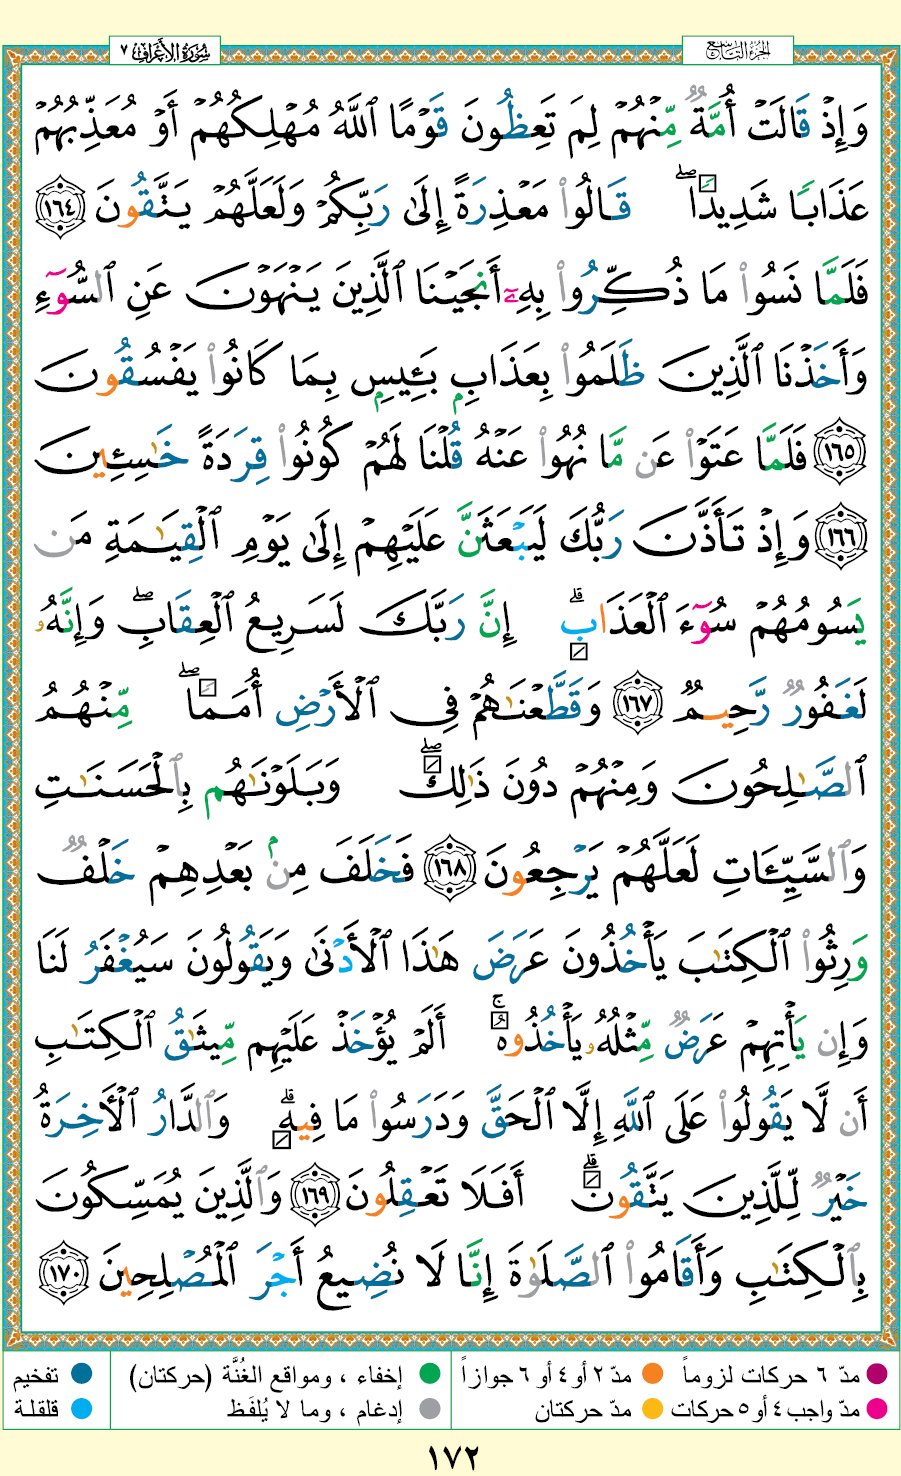 سُورَةُ الأَعْرَافِ ٧
الجُزْءُ التَّاسِعُ
وَإِذْ قَالَتْ أُمَّةٌ مِّنْهُمْ لِمَ تَعِظُونَ قَوْمًا ٱللَّهُ مُهْلِكُهُمْ أَوْ مُعَذِّبُهُمْ
عَذَابًا شَدِيدًا ۖ قَالُوا۟ مَعْذِرَةً إِلَىٰ رَبِّكُمْ وَلَعَلَّهُمْ يَتَّقُونَ ١٦٤
فَلَمَّا نَسُوا۟ مَا ذُكِّرُوا۟ بِهِۦٓ أَنجَيْنَا ٱلَّذِينَ يَنْهَوْنَ عَنِ ٱلسُّوٓءِ
وَأَخَذْنَا ٱلَّذِينَ ظَلَمُوا۟ بِعَذَابٍۭ بَـِٔيسٍۭ بِمَا كَانُوا۟ يَفْسُقُونَ
١٦٥ فَلَمَّا عَتَوْا۟ عَن مَّا نُهُوا۟ عَنْهُ قُلْنَا لَهُمْ كُونُوا۟ قِرَدَةً خَـٰسِـِٔينَ
١٦٦ وَإِذْ تَأَذَّنَ رَبُّكَ لَيَبْعَثَنَّ عَلَيْهِمْ إِلَىٰ يَوْمِ ٱلْقِيَـٰمَةِ مَن
يَسُومُهُمْ سُوٓءَ ٱلْعَذَابِ ۗ إِنَّ رَبَّكَ لَسَرِيعُ ٱلْعِقَابِ ۖ وَإِنَّهُۥ
لَغَفُورٌ رَّحِيمٌ ١٦٧ وَقَطَّعْنَـٰهُمْ فِى ٱلْأَرْضِ أُمَمًا ۖ مِّنْهُمُ
ٱلصَّـٰلِحُونَ وَمِنْهُمْ دُونَ ذَٰلِكَ ۖ وَبَلَوْنَـٰهُم بِٱلْحَسَنَـٰتِ
وَٱلسَّيِّـَٔاتِ لَعَلَّهُمْ يَرْجِعُونَ ١٦٨ فَخَلَفَ مِنۢ بَعْدِهِمْ خَلْفٌ
وَرِثُوا۟ ٱلْكِتَـٰبَ يَأْخُذُونَ عَرَضَ هَـٰذَا ٱلْأَدْنَىٰ وَيَقُولُونَ سَيُغْفَرُ لَنَا
وَإِن يَأْتِهِمْ عَرَضٌ مِّثْلُهُۥ يَأْخُذُوهُ ۚ أَلَمْ يُؤْخَذْ عَلَيْهِم مِّيثَـٰقُ ٱلْكِتَـٰبِ
أَن لَّا يَقُولُوا۟ عَلَى ٱللَّهِ إِلَّا ٱلْحَقَّ وَدَرَسُوا۟ مَا فِيهِ ۗ وَٱلدَّارُ ٱلْـَٔاخِرَةُ
خَيْرٌ لِّلَّذِينَ يَتَّقُونَ ۗ أَفَلَا تَعْقِلُونَ ١٦٩ وَٱلَّذِينَ يُمَسِّكُونَ
بِٱلْكِتَـٰبِ وَأَقَامُوا۟ ٱلصَّلَوٰةَ إِنَّا لَا نُضِيعُ أَجْرَ ٱلْمُصْلِحِينَ ١٧٠
مدّ ٦ حركات لزوماً
مدّ ٢ أو ٤ أو ٦ جوازاً
إخفاء ، ومواقع الغُنَّة (حركتان)
تفخيم
مدّ واجب ٤ أو ٥ حركات
مدّ حركتان
إدغام ، وما لا يُلفَظ
قلقلة
١٧٢